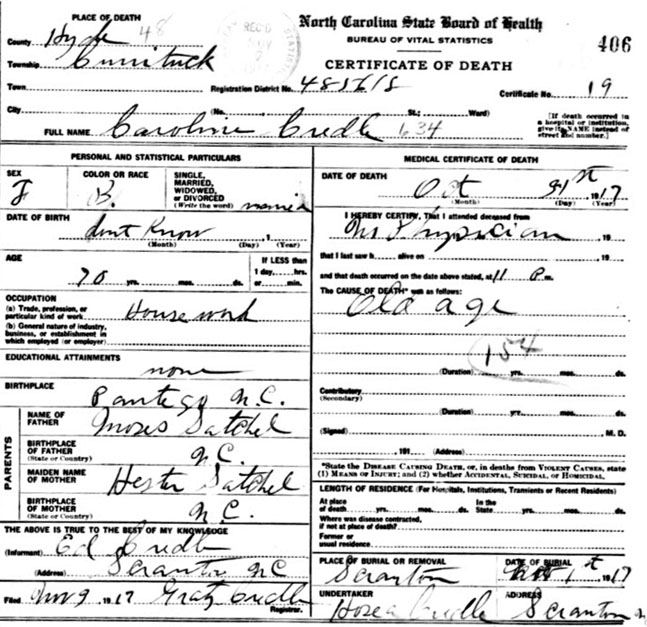 PLACE OF DEATH
County Hyde 48
Township Currituck
Town
City
REC'D
North Carolina State Board of Health
BUREAU OF VITAL STATISTICS
CERTIFICATE OF DEATH
406
Registration District No. Certificate No. 19
(No. St.; Ward)
[If death occurred in a hospital or institution, give its NAME instead of street and number.]
FULL NAME Caroline Credle 634
PERSONAL AND STATISTICAL PARTICULARS
SEX F
COLOR OR RACE B.
SINGLE, MARRIED, WIDOWED, or DIVORCED (Write the word) married
DATE OF BIRTH dont Know , 1
(Month) (Day) (Year)
AGE 70 yrs. mos. ds.
IF LESS than 1 day, hrs. or min.
OCCUPATION
(a) Trade, profession, or particular kind of work House work
(b) General nature of industry, business, or establishment in which employed (or employer)
EDUCATIONAL ATTAINMENTS none
BIRTHPLACE Pantego N.C.
PARENTS
NAME OF FATHER Moses Satchel
BIRTHPLACE OF FATHER (State or Country) N.C.
MAIDEN NAME OF MOTHER Hester Satchel
BIRTHPLACE OF MOTHER (State or Country) N.C.
THE ABOVE IS TRUE TO THE BEST OF MY KNOWLEDGE
(Informant) Ed Credle
(Address) Scranton NC
Filed Nov 9 1917 Gratz Credle
Registrar.
MEDICAL CERTIFICATE OF DEATH
DATE OF DEATH Oct 31st 1917
(Month) (Day) (Year)
I HEREBY CERTIFY, That I attended deceased from
No Physician , 19
that I last saw h alive on , 19
and that death occurred on the date above stated, at 11 P m.
The CAUSE OF DEATH* was as follows:
Old age
154
(Duration) yrs. mos. ds.
Contributory (Secondary)
(Duration) yrs. mos. ds.
(Signed) M. D.
, 191 (Address)
*State the DISEASE CAUSING DEATH, or, in deaths from VIOLENT CAUSES, state (1) MEANS OF INJURY; and (2) whether ACCIDENTAL, SUICIDAL, OR HOMICIDAL.
LENGTH OF RESIDENCE (For Hospitals, Institutions, Transients or Recent Residents)
At place of death yrs. mos. ds. In the State yrs. mos. ds.
Where was disease contracted, if not at place of death?
Former or usual residence
PLACE OF BURIAL OR REMOVAL Scranton
DATE OF BURIAL 1st 1917
UNDERTAKER Hosea Credle
ADDRESS Scranton